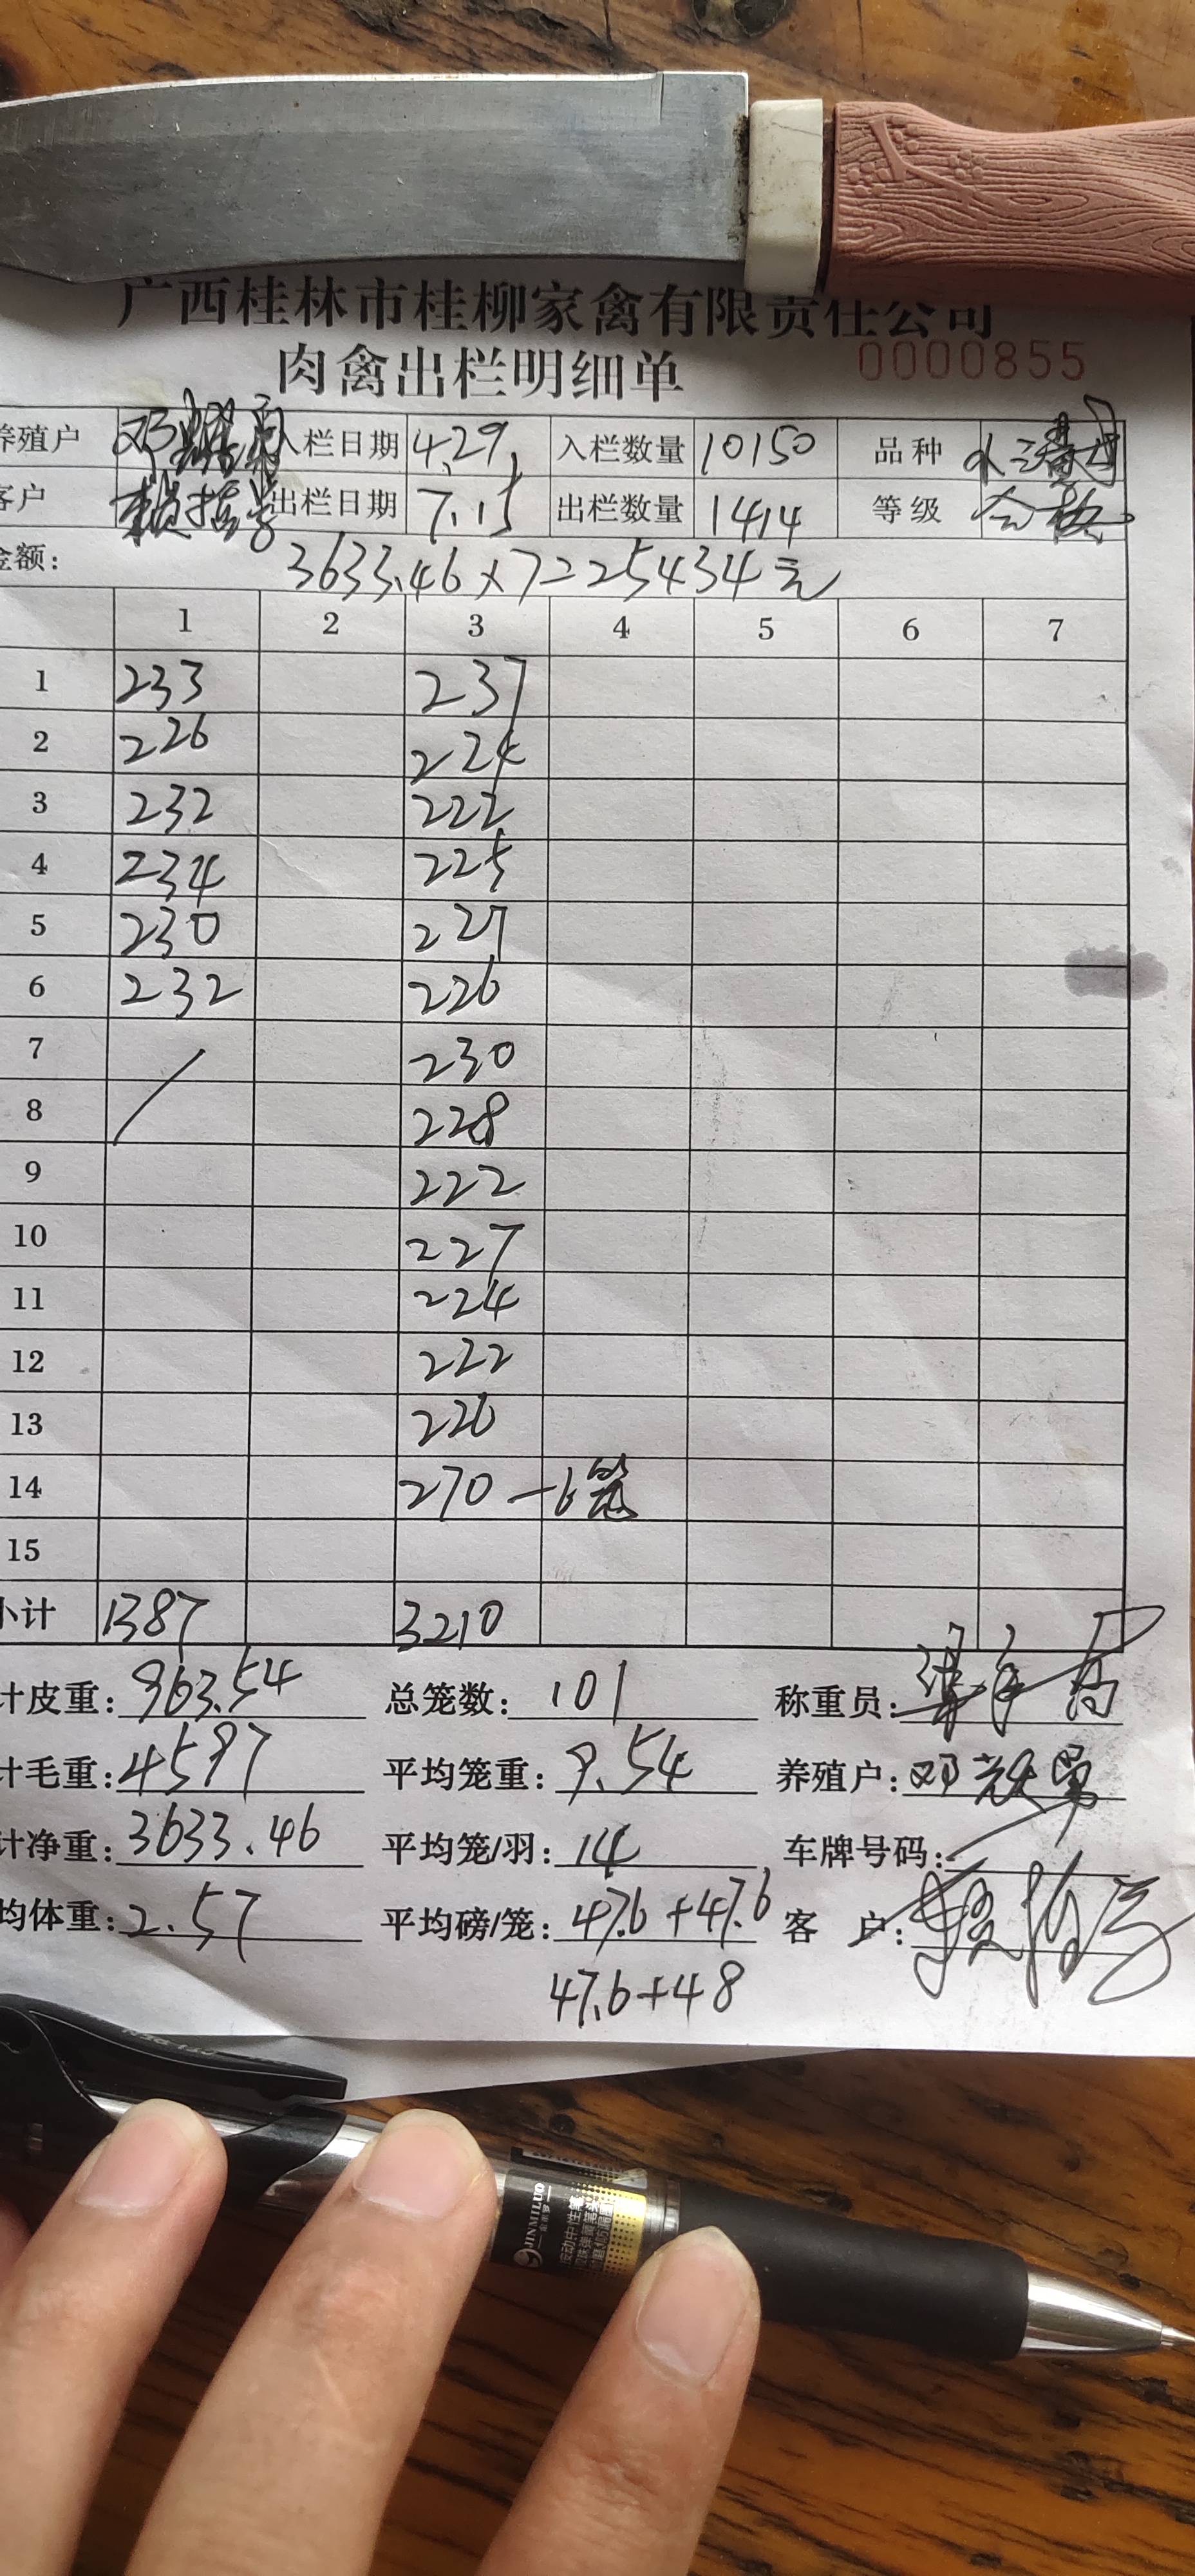 广西桂林市桂柳家禽有限责任公司
肉禽出栏明细单 0000855
养殖户 入栏日期 4.29 入栏数量 10150 品种
客户 出栏日期 7.15 出栏数量 1414 等级 合格
金额: 3633.46×7=25434元
1 2 3 4 5 6 7
1 233 237
2 226 224
3 232 222
4 234 225
5 230 227
6 232 226
7 230
8 228
9 222
10 227
11 224
12 222
13 226
14 270 —6笼
15
小计 1387 3210
计皮重: 963.54 总笼数: 101 称重员:
计毛重: 4597 平均笼重: 9.54 养殖户:
计净重: 3633.46 平均笼/羽: 14 车牌号码:
均体重: 2.57 平均磅/笼: 47.6+47.6 客 户:
47.6+48
JINMILUO